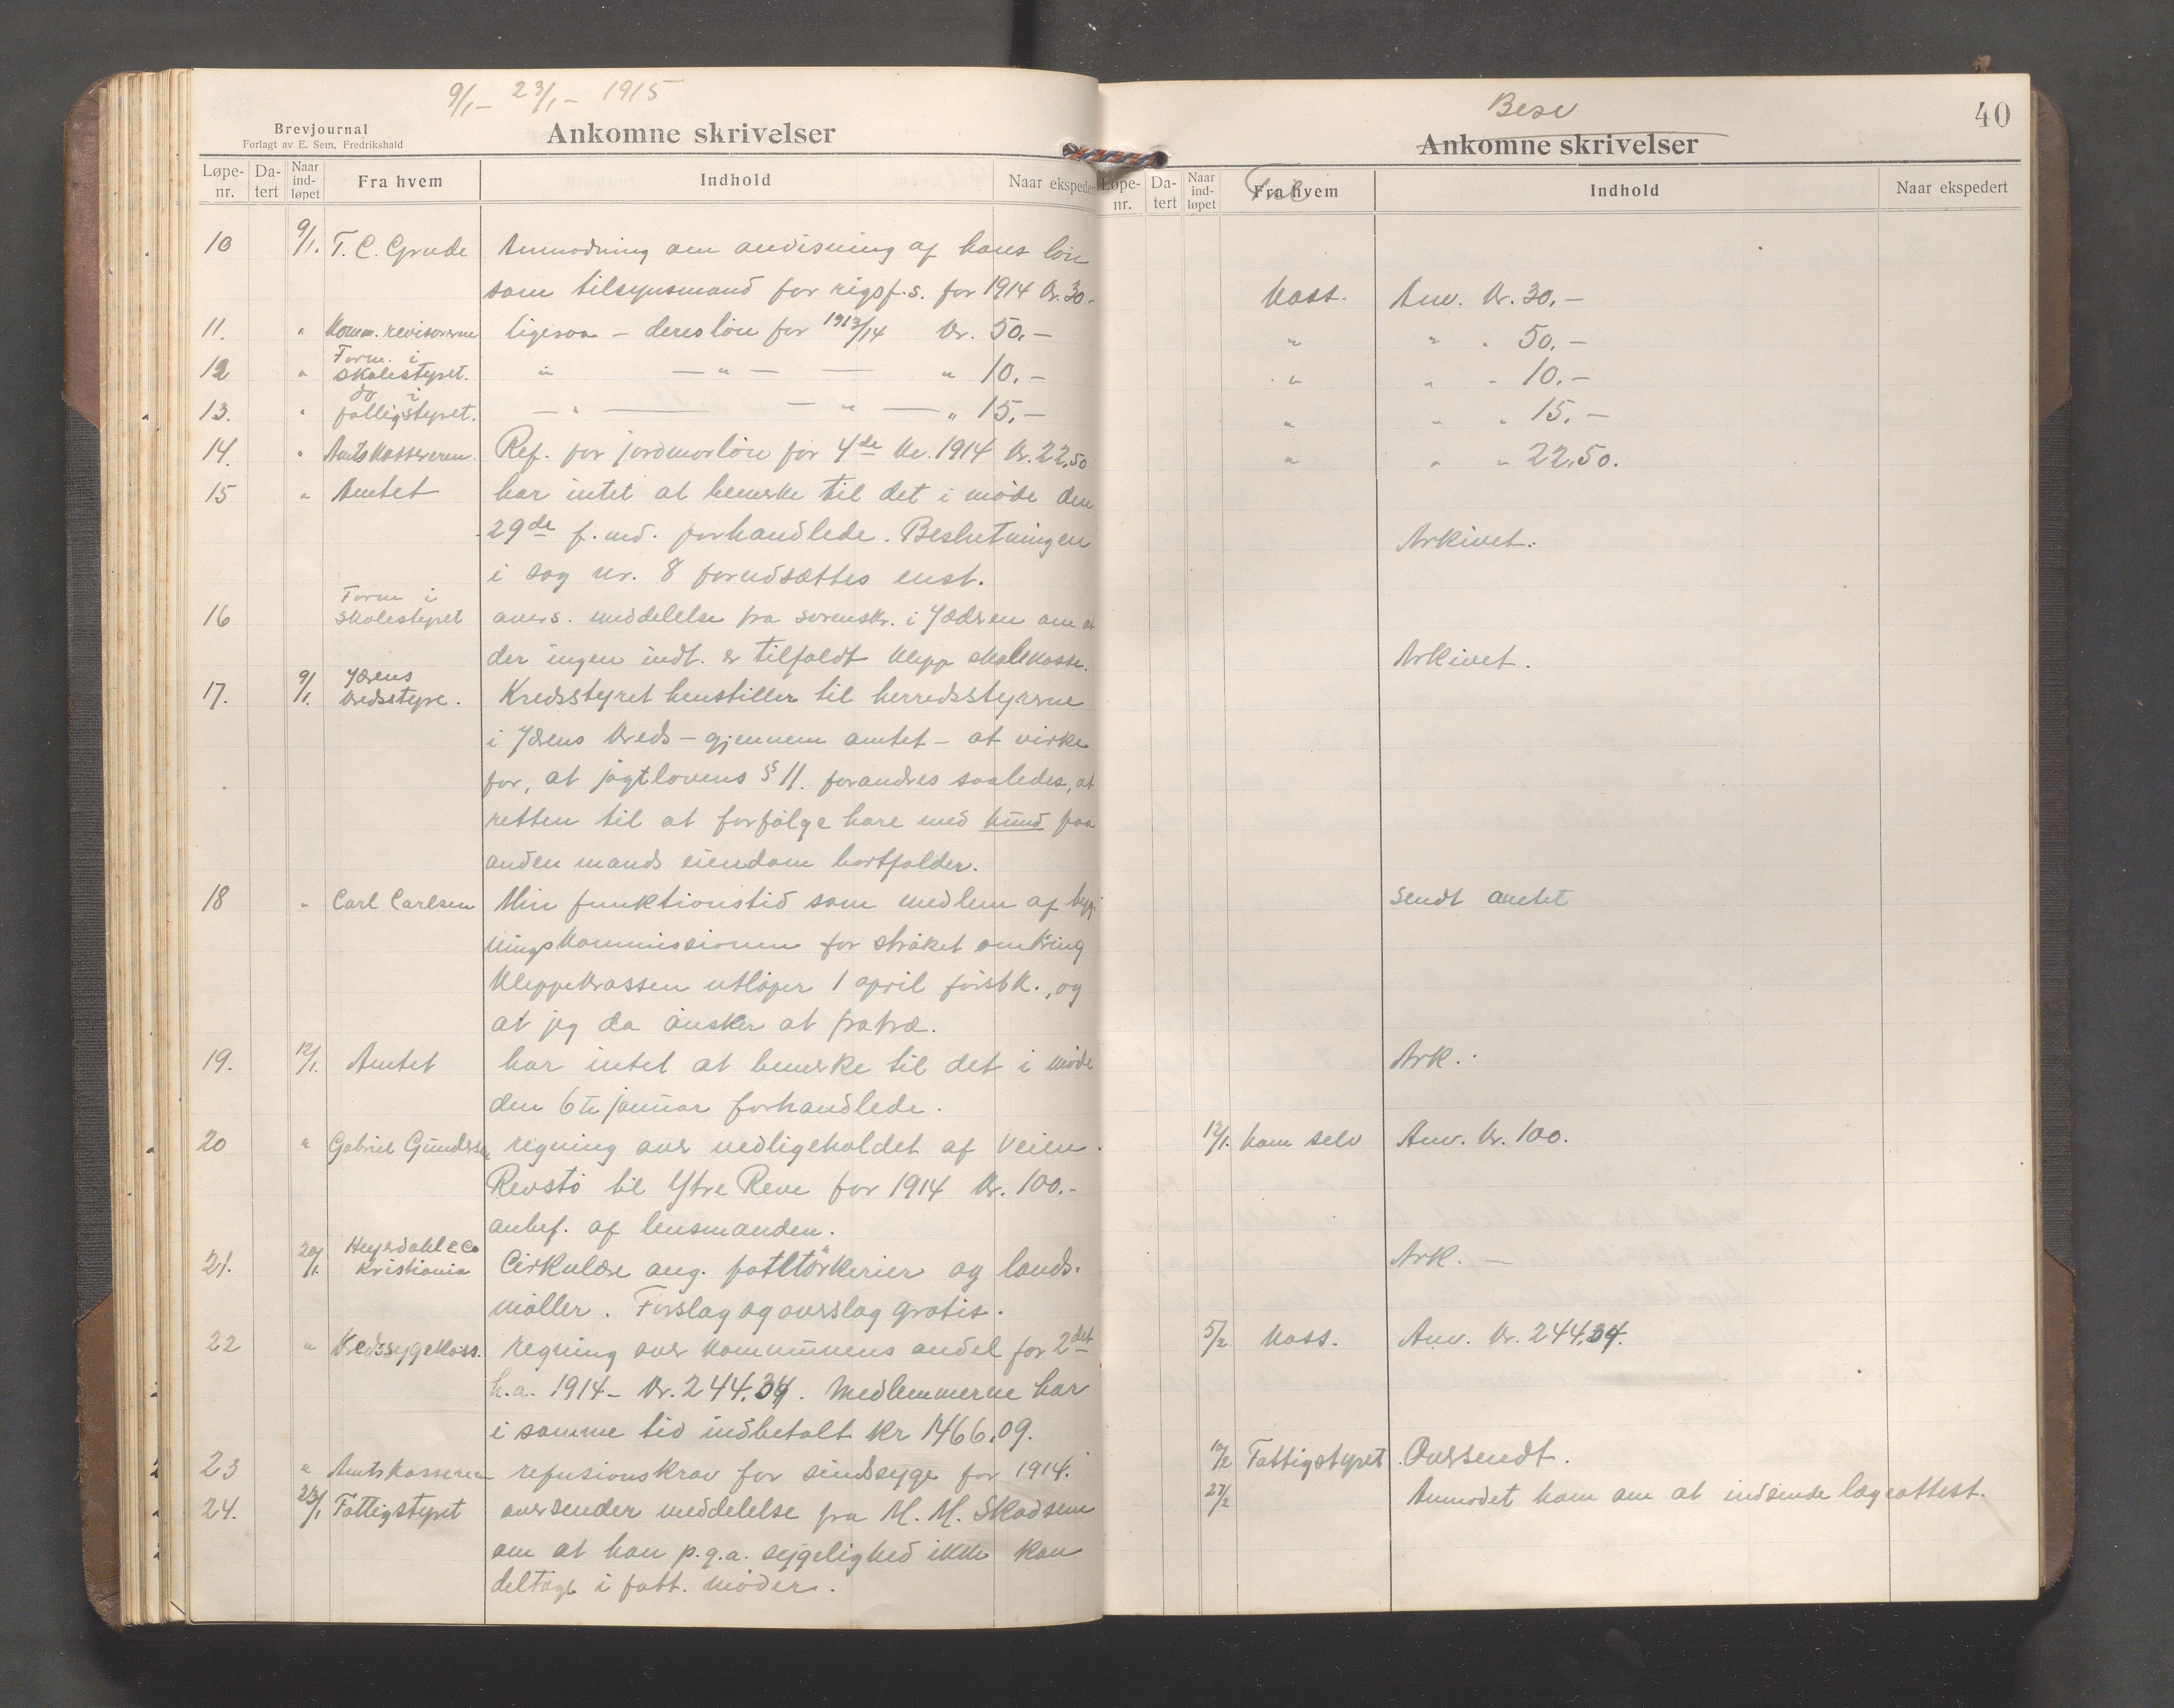 9/1 – 23/1 – 1915
Brevjournal
Forlagt av E. Sem, Fredrikshald
Ankomne skrivelser
Løpe-nr. Da-tert Naar ind-løpet Fra hvem Indhold Naar ekspedert
10 9/1. T. C. Grude Anmodning om anvisning af hans løn
som tilsynsmand for rigsf.s. for 1914 Kr. 30.-
11. " Komm. revisorerne ligesaa – deres løn for 1913/14 Kr. 50,–
12 " Form. i skolestyret. " — " — — " 10.–
13. " do i fattigstyret. — " — — " — " 15,–
14. " Amtskassereren. Ref. for jordmorløn for 4de Kv. 1914 Kr. 22,50
15 " Amtet har intet at bemerke til det i møde den
29de f. md. forhandlede. Beslutningen
i sag nr. 8 forudsættes enst.
16 Form i skolestyret overs. meddelelse fra sorenskr. i Jædren om at
der ingen indt. er tilfaldt Klepp skolekasse.
17. 9/1. Jærens kredsstyre. Kredsstyret henstiller til herredsstyrerne
i Jærens Kreds – gjennem amtet – at virke
for, at jagtlovens § 11. forandres saaledes, at
retten til at forfølge hare med hund paa
anden mands eiendom bortfalder.
18 " Carl Carlsen Min funktionstid som medlem af byg-
ningskommissionen for strøket omkring
Kleppekrossen utløper 1 april førstk., og
at jeg da ønsker at fratræ.
19. 12/1. Amtet har intet at bemerke til det i møde
den 6te januar forhandlede.
20 " Gabriel Gundersen regning over vedligeholdet af veien
Revstø til Ytre Reve for 1914 Kr. 100.-
anbef. af lensmanden.
21. 20/1. Heyerdahl & Co Kristiania Cirkulære ang. potettørkerier og lands-
møller. Forslag og overslag gratis.
22 " Kredssygekass. regning over kommunens andel for 2det
h.a. 1914 – Kr. 244.34. Medlemmerne har
i samme tid indbetalt kr 1466.09.
23 " Amtskassereren refusionskrav for sindssyge for 1914.
24. 23/1 Fattigstyret oversender meddelelse fra M. M. Skadsem
om at han p.g.a. sygelighed ikke kan
deltage i fatt. møder.
Besv
40
Ankomne skrivelser
Løpe-nr. Da-tert Naar ind-løpet Fra hvem Indhold Naar ekspedert
Kass. Anv. Kr. 30,–
" " " 50,–
" " " 10,–
" " " 15,–
" " " 22,50.
Arkivet.
Arkivet.
Sendt amtet
Ark.
12/1. ham selv Anv. Kr. 100.
Ark. –
5/2 Kass. Anv. Kr. 244.34.
10/2 Fattigstyret Oversendt.
27/2 Anmodet ham om at indsende lægeattest.